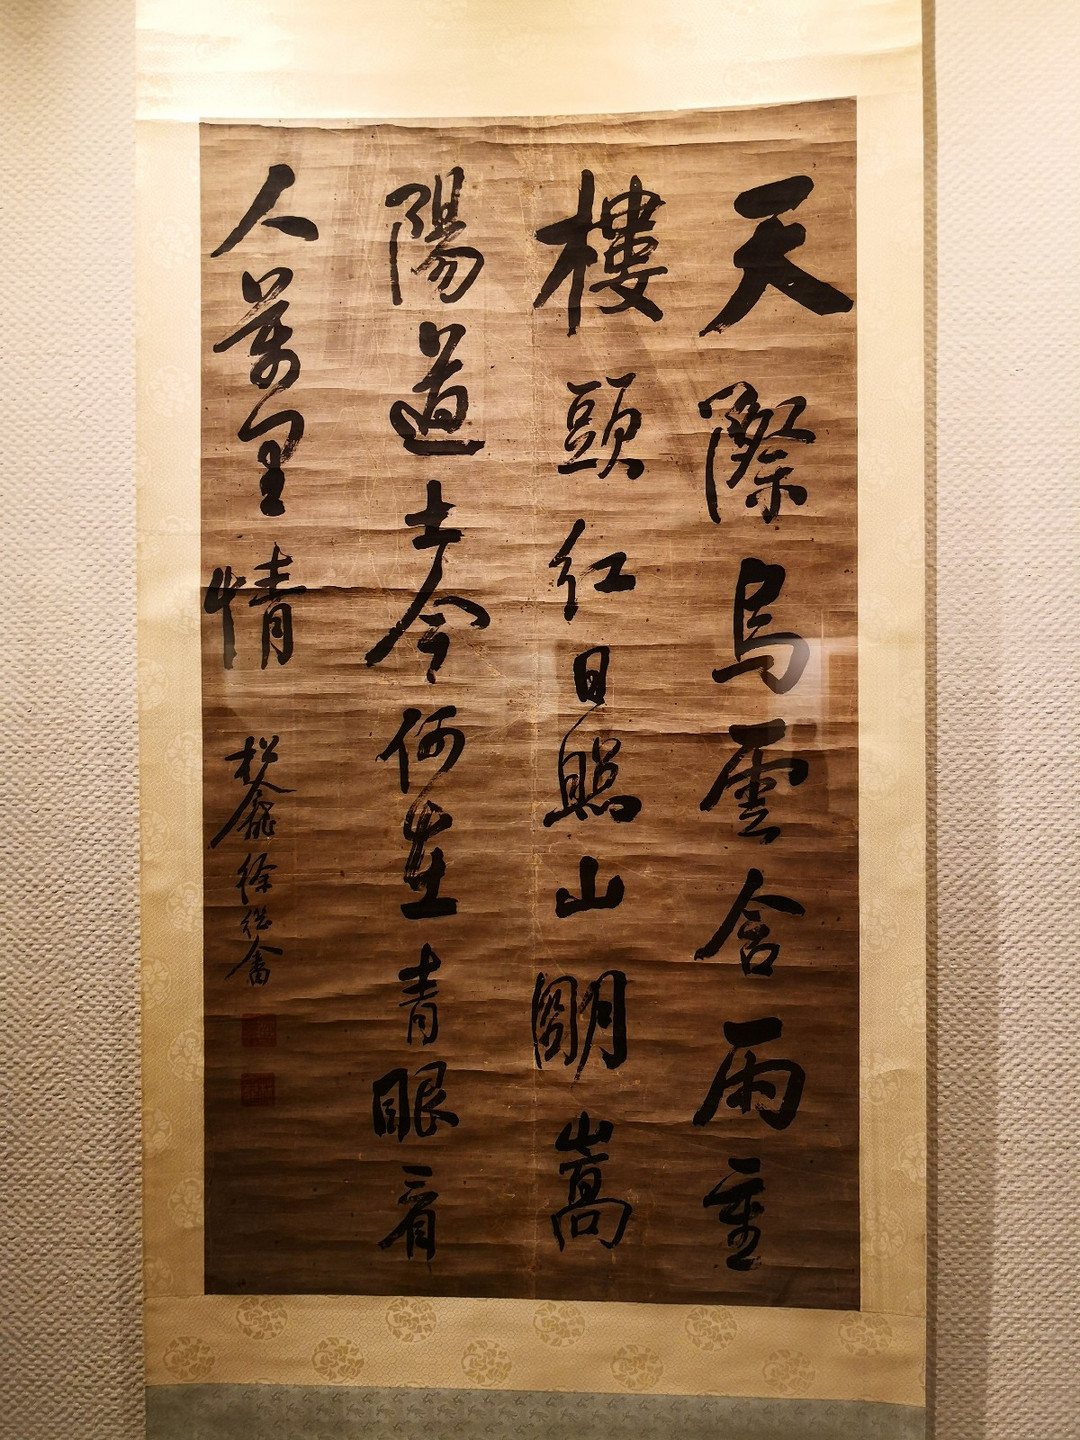 天際烏雲含雨重
樓頭紅日照山明嵩
陽道士今何在青眼看
人萬里情
松龕徐繼畬